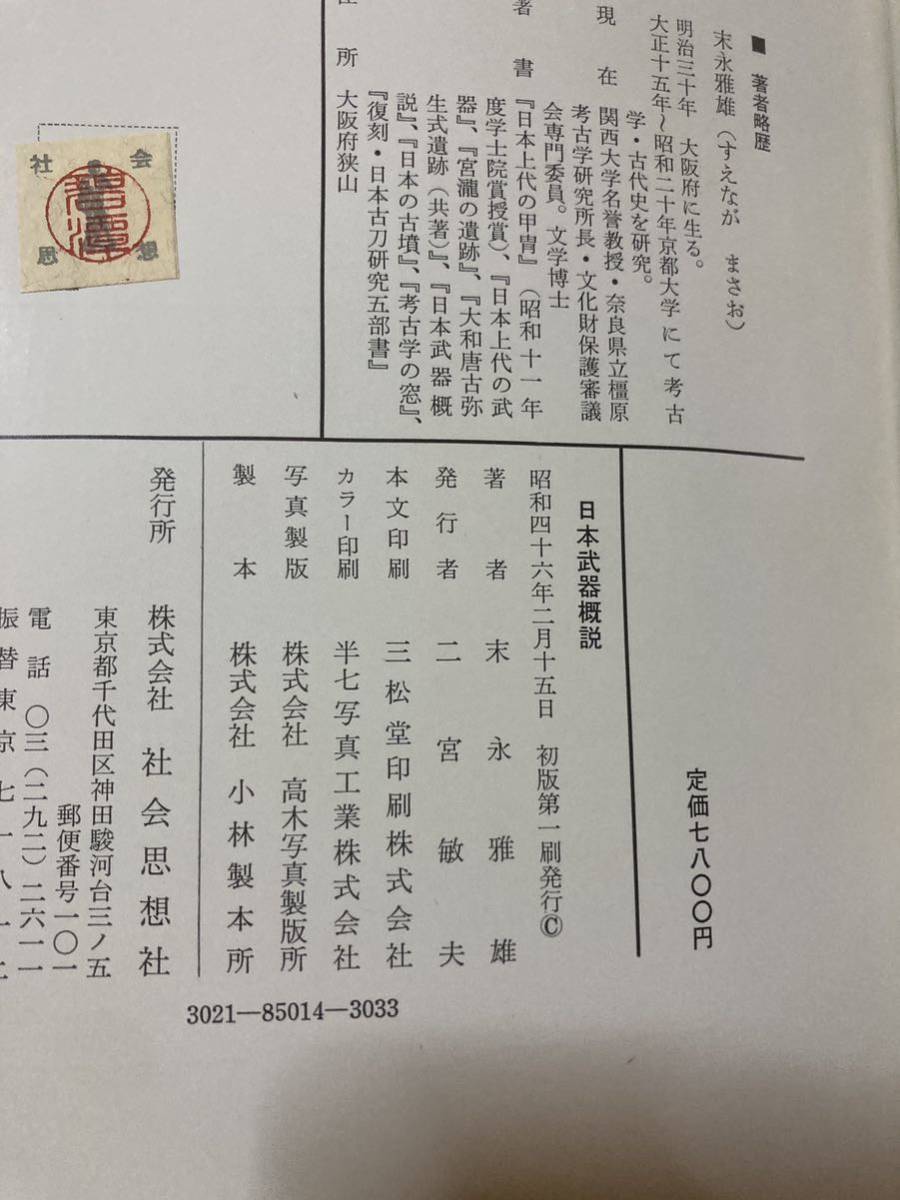 ■ 著者略歴
末永雅雄（すえなが まさお）
明治三十年 大阪府に生る。
大正十五年〜昭和二十年京都大学にて考古
学・古代史を研究。
現在 関西大学名誉教授・奈良県立橿原
考古学研究所長・文化財保護審議
会専門委員。文学博士
著書 『日本上代の甲冑』（昭和十一年
度学士院賞授賞）、『日本上代の武
器』、『宮瀧の遺跡』、『大和唐古弥
生式遺跡（共著）』、『日本武器概
説』、『日本の古墳』、『考古学の窓』、
『復刻・日本古刀研究五部書』
住所 大阪府狭山
社会思想
定価七八〇〇円
日本武器概説
昭和四十六年二月十五日 初版第一刷発行©
著者 末永雅雄
発行者 二宮敏夫
本文印刷 三松堂印刷株式会社
カラー印刷 半七写真工業株式会社
写真製版 株式会社 高木写真製版所
製本 株式会社 小林製本所
発行所 株式会社 社会思想社
東京都千代田区神田駿河台三ノ五
郵便番号一〇一
電話 〇三（二九二）二六一一
振替東京七一八一二
3021—85014—3033